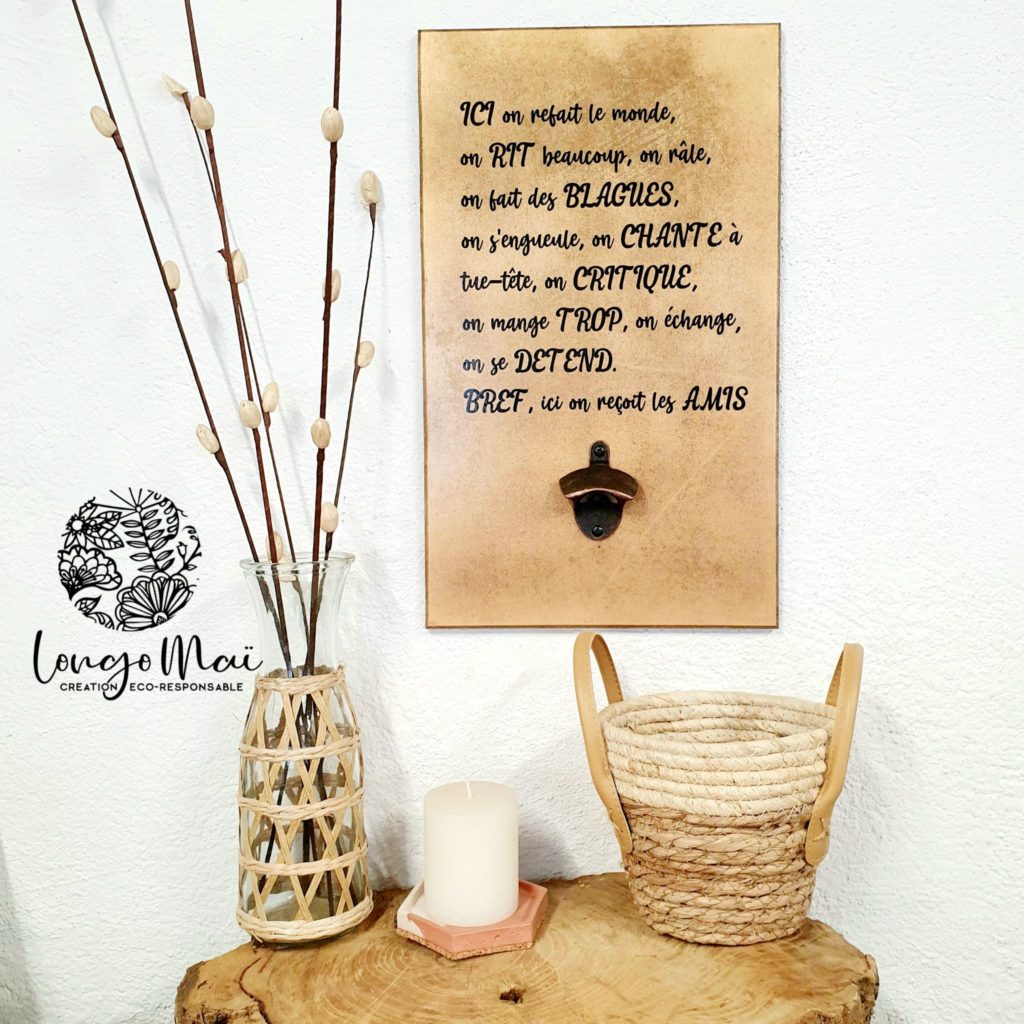 ICI on refait le monde,
on RIT beaucoup, on râle,
on fait des BLAGUES,
on s'engueule, on CHANTE à
tue-tête, on CRITIQUE,
on mange TROP, on échange,
on se DETEND.
BREF, ici on reçoit les AMIS
Longo Maï
CREATION ECO-RESPONSABLE